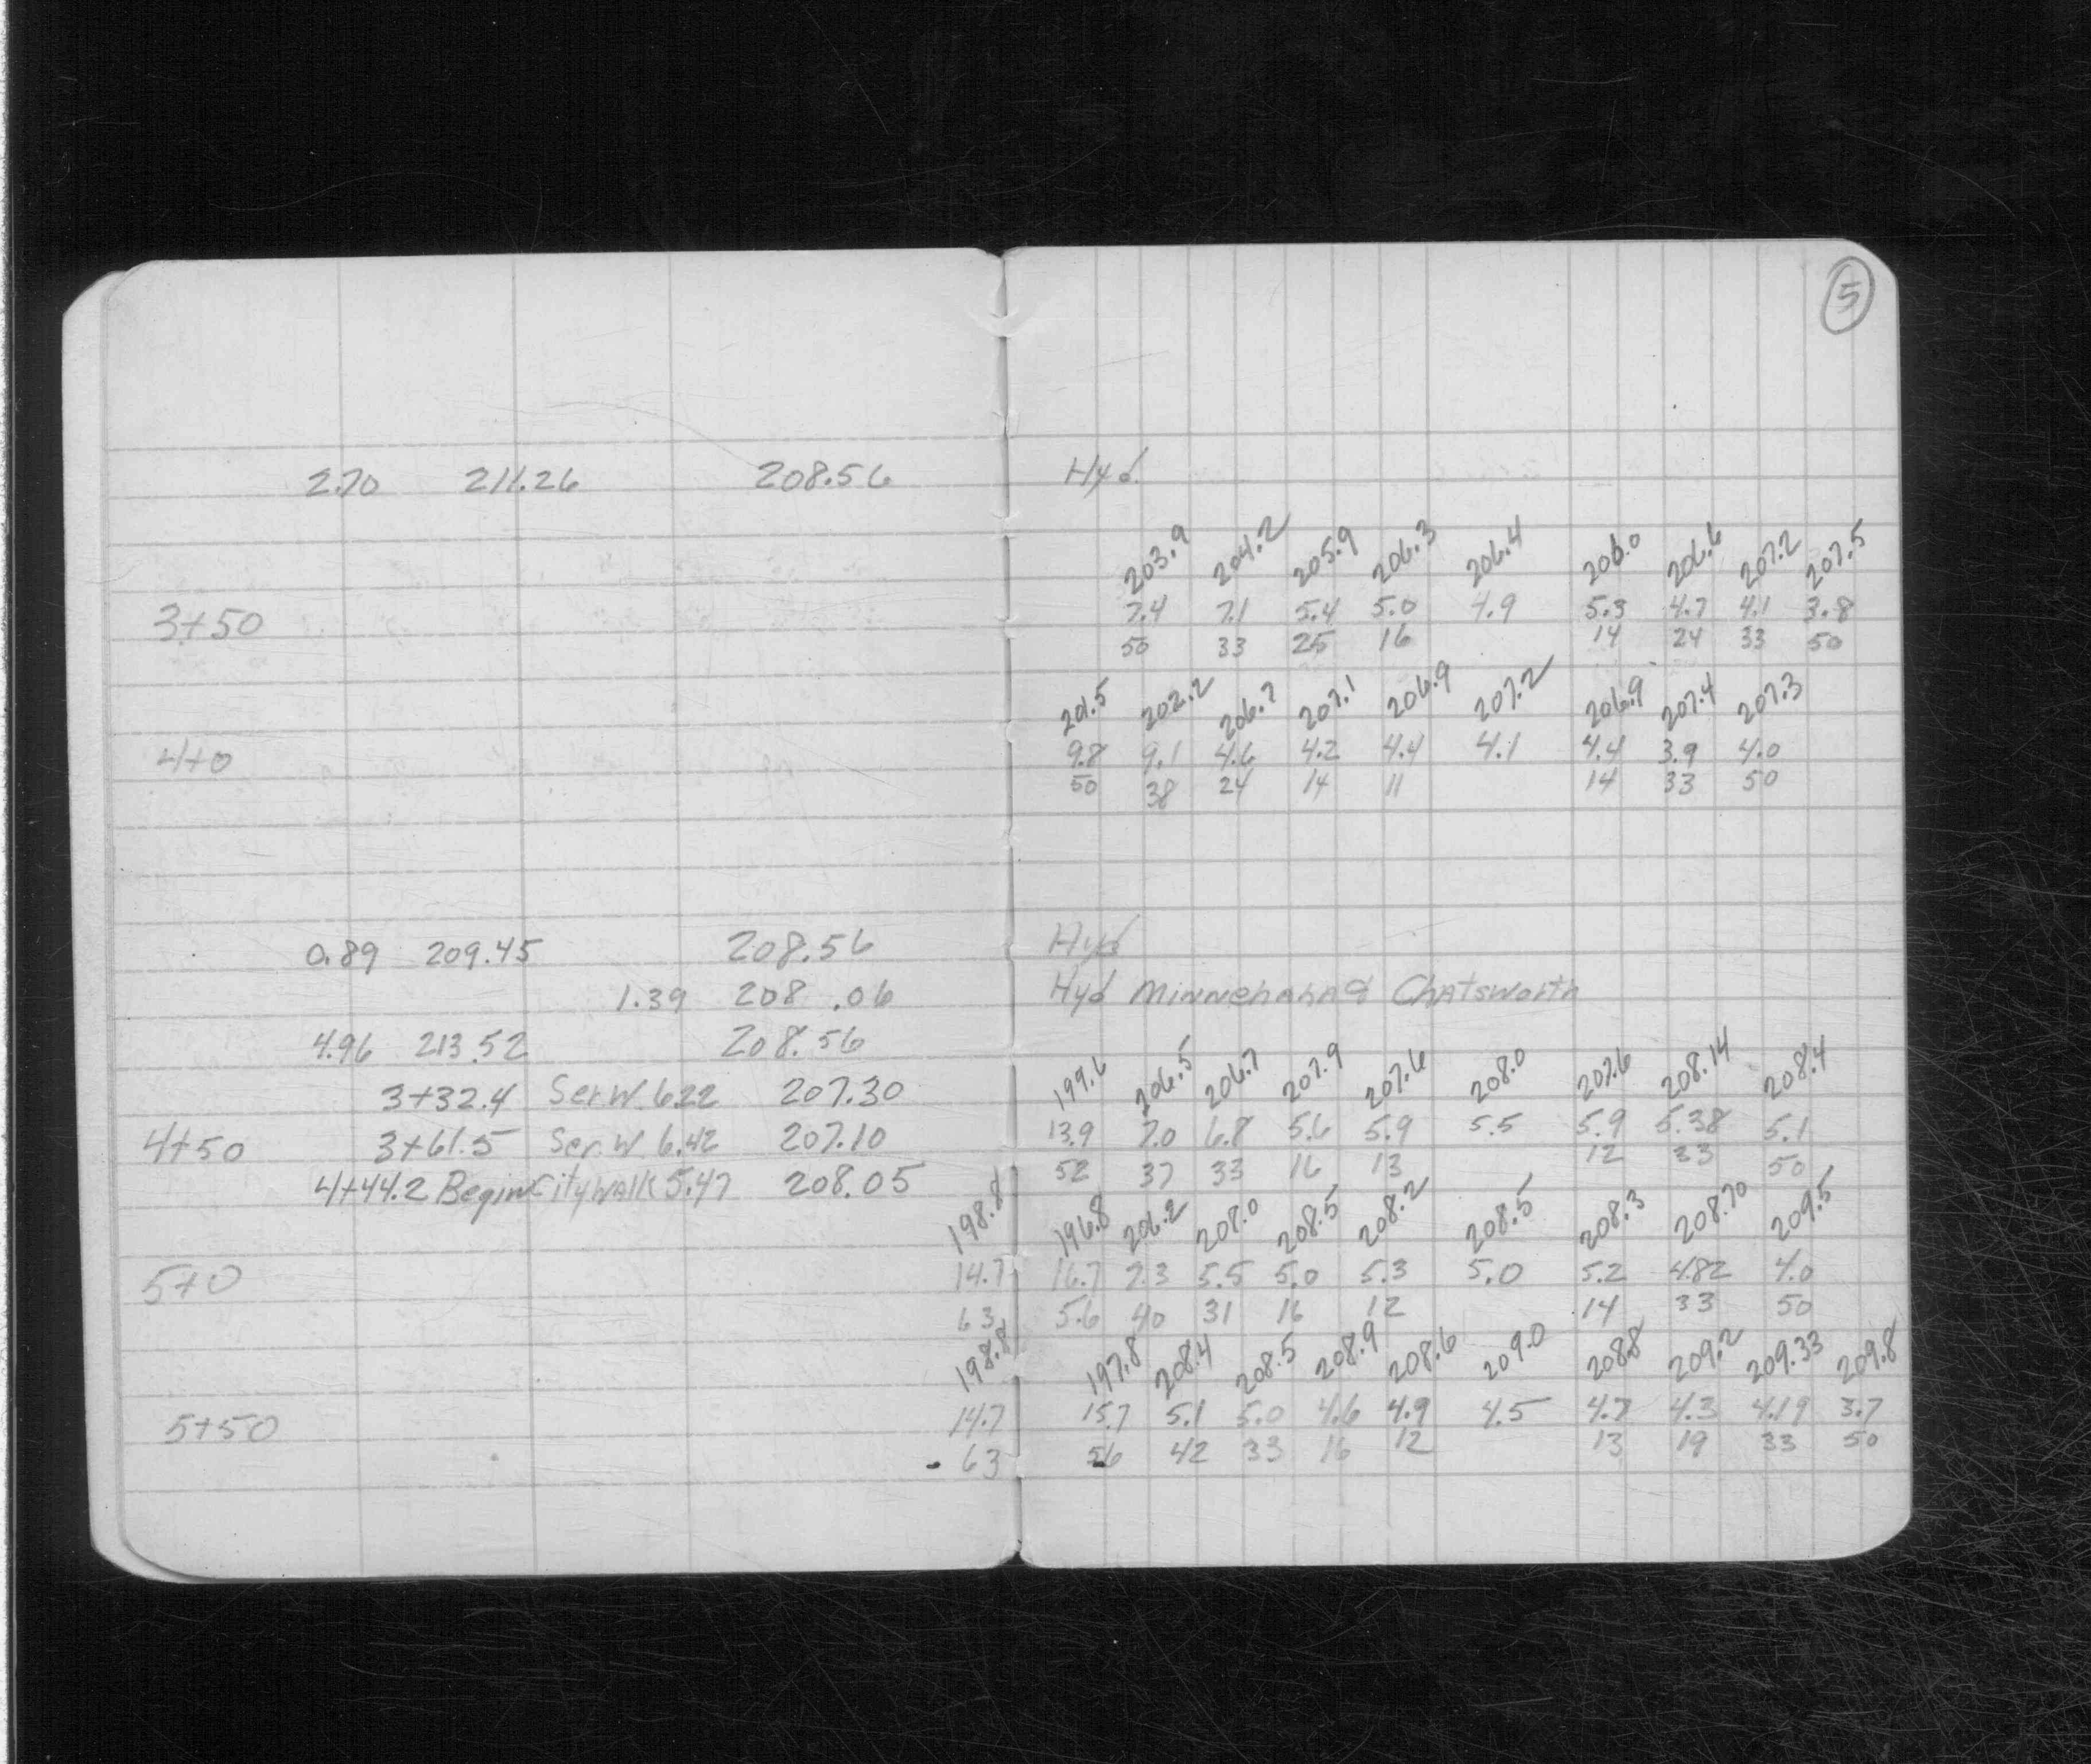 5
2.70 211.26 208.56 Hyd.
203.9 204.2 205.9 206.3 206.4 206.0 206.6 207.2 207.5
3+50 7.4 7.1 5.4 5.0 4.9 5.3 4.7 4.1 3.8
50 33 25 16 14 24 33 50
201.5 202.2 206.7 207.1 206.9 207.2 206.9 207.4 207.3
4+0 9.8 9.1 4.6 4.2 4.4 4.1 4.4 3.9 4.0
50 38 24 14 11 14 33 50
0.89 209.45 208.56 Hyd
1.39 208.06 Hyd Minnehaha & Chatsworth
4.96 213.52 208.56
199.6 206.5 206.7 207.9 207.6 208.0 207.6 208.14 208.4
3+32.4 Ser.W. 6.22 207.30
4+50 3+61.5 Ser.W. 6.42 207.10 13.9 7.0 6.8 5.6 5.9 5.5 5.9 5.38 5.1
52 37 33 16 13 12 33 50
4+44.2 Begin City Walk 5.47 208.05
198.8 196.8 206.2 208.0 208.5 208.2 208.5 208.3 208.70 209.5
5+0 14.7 16.7 7.3 5.5 5.0 5.3 5.0 5.2 4.82 4.0
63 5.6 40 31 16 12 14 33 50
198.8 197.8 208.4 208.5 208.9 208.6 209.0 208.8 209.2 209.33 209.8
5+50 14.7 15.7 5.1 5.0 4.6 4.9 4.5 4.7 4.3 4.19 3.7
63 56 42 33 16 12 13 19 33 50